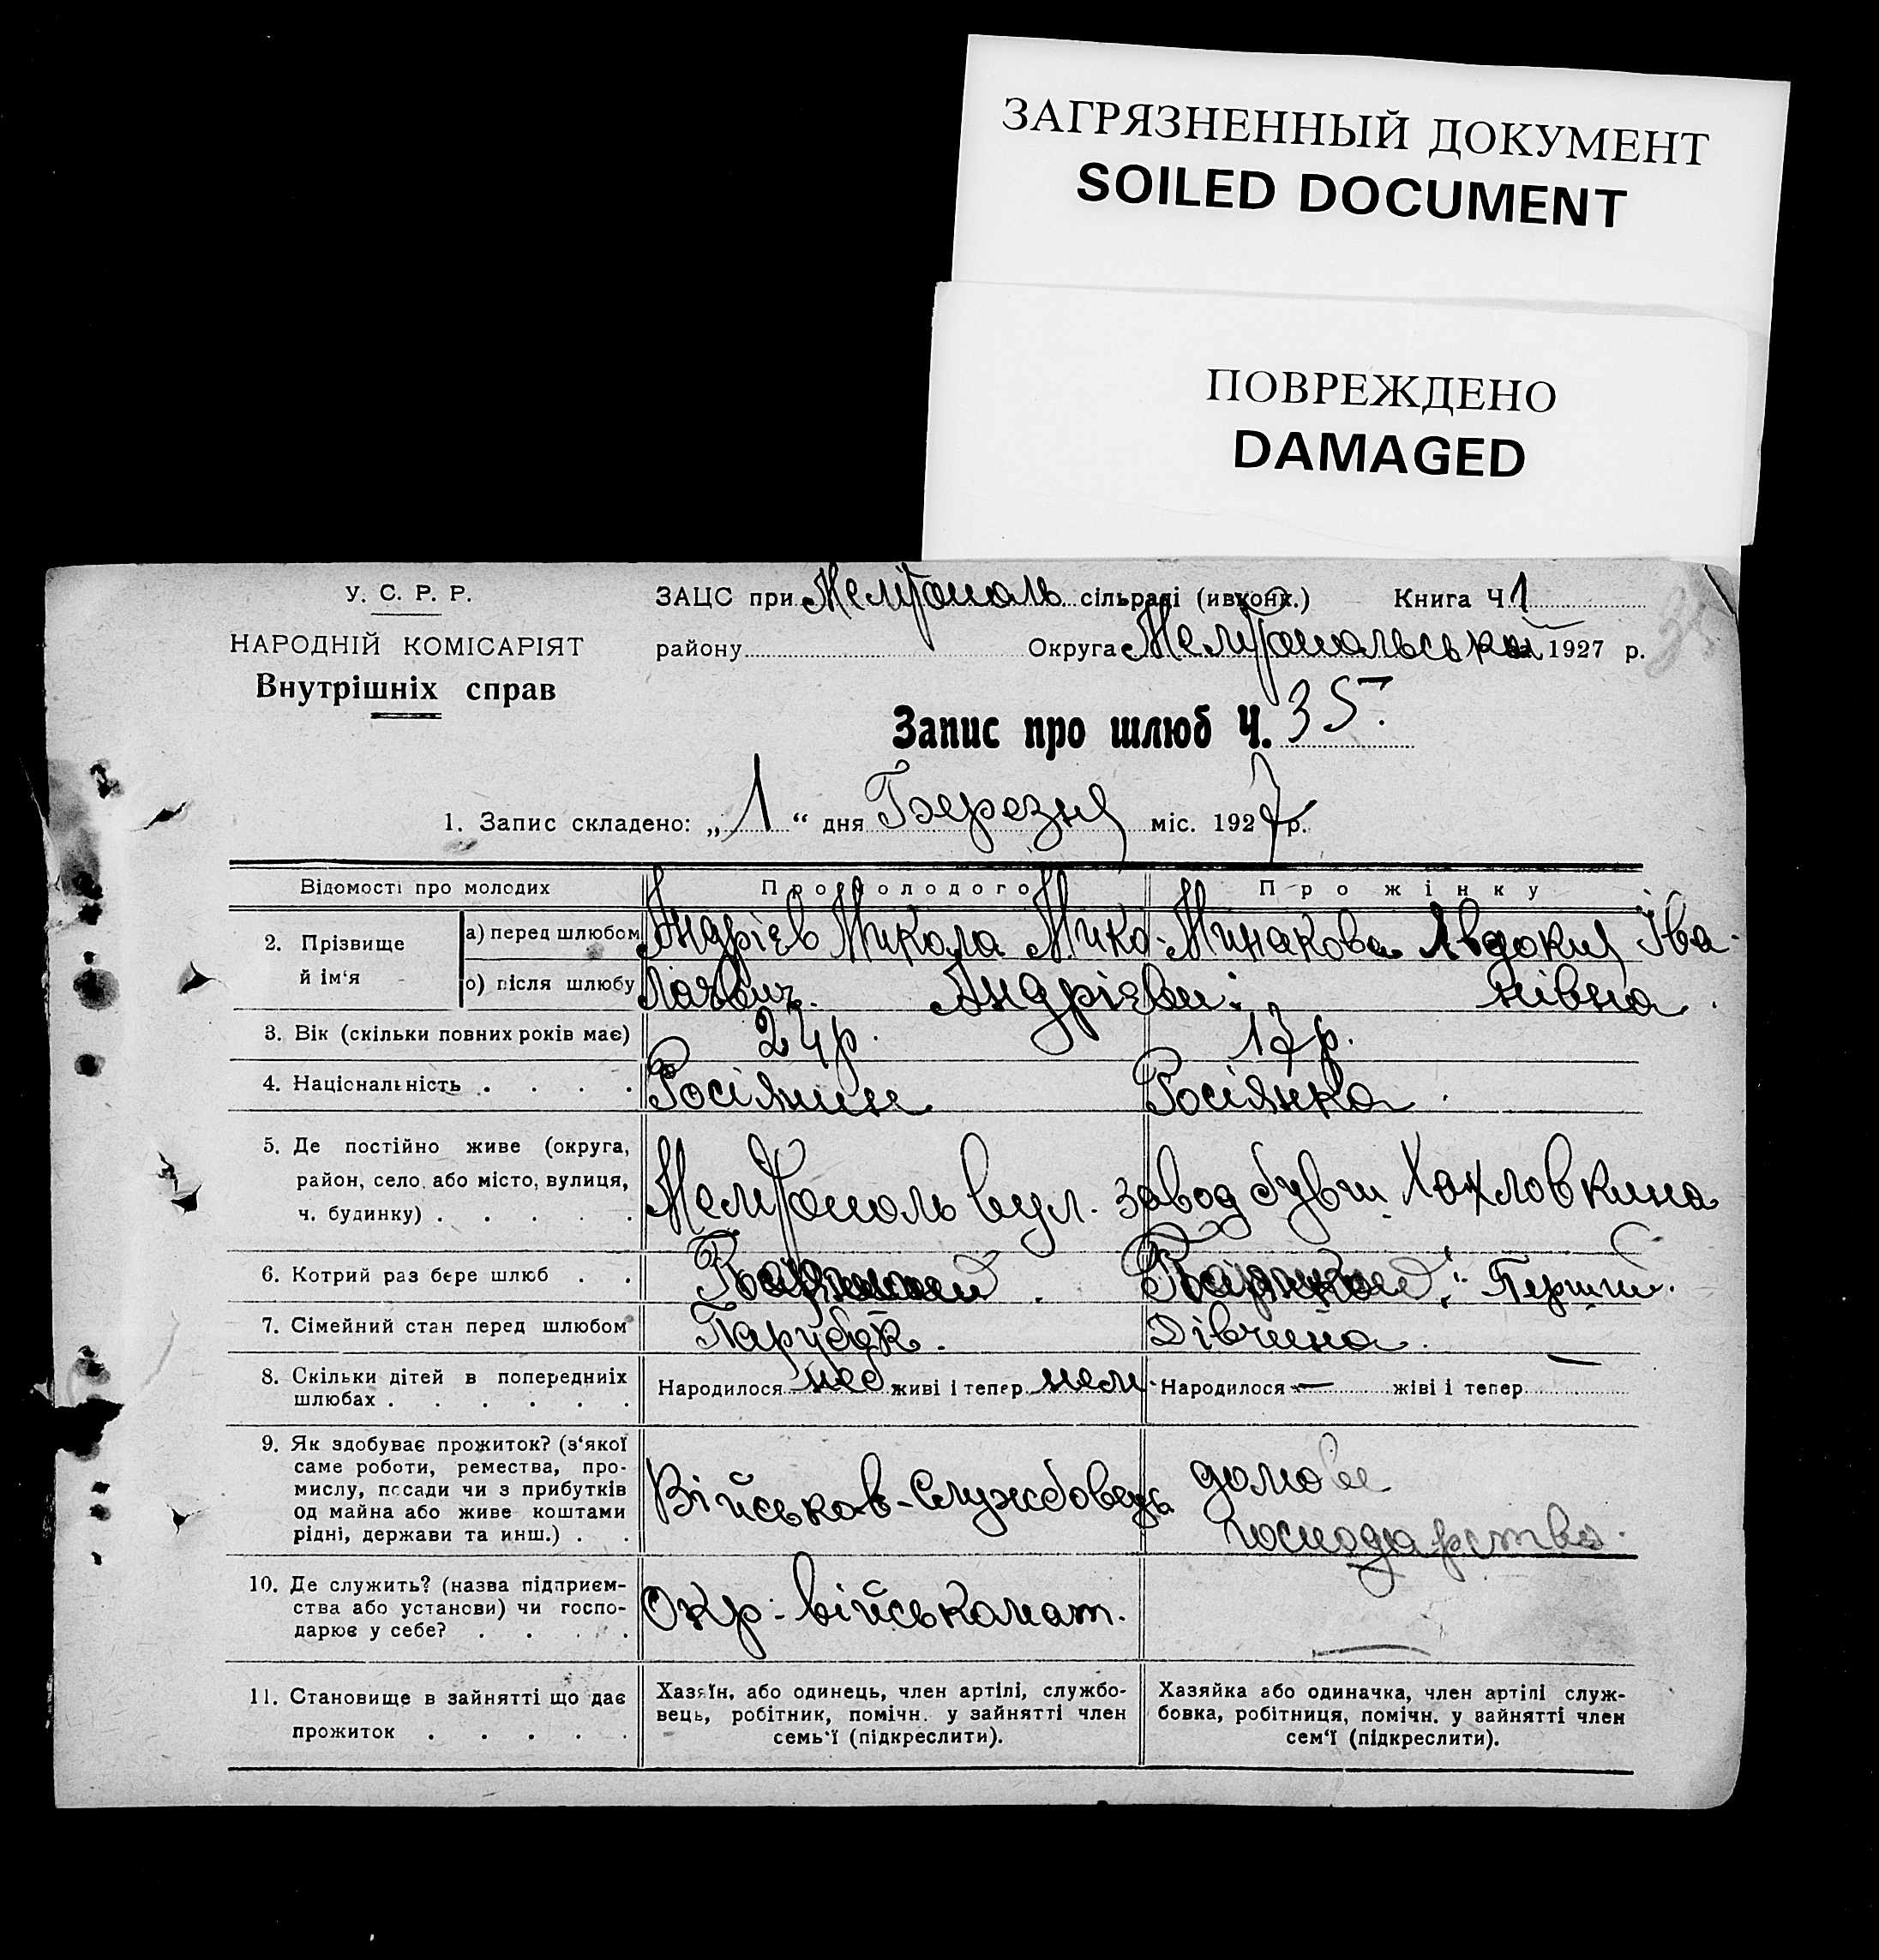 ЗАГРЯЗНЕННЫЙ ДОКУМЕНТ
SOILED DOCUMENT
ПОВРЕЖДЕНО
DAMAGED
У. С. Р. Р.
НАРОДНІЙ КОМІСАРІЯТ
Внутрішніх справ
ЗАЦС при Мелітополь сільраді (ивконк.) Книга Ч 1
району Округа Мелітопольська 1927 р.
35
Запис про шлюб Ч. 35.
1. Запис складено: „ 1 “ дня Березня міс. 1927 р.
Відомості про молодих Про молодого Про жінку
2. Прізвище й ім'я а) перед шлюбом Андрієв Микола Мико- Минакова Явдокия Іва-
о) після шлюбу лаєвич. Андрієви. нівна.
3. Вік (скільки повних років має) 24 р. 17 р.
4. Національність . . . . Росіянин Росіянка.
5. Де постійно живе (округа,
район, село, або місто, вулиця,
ч. будинку) . . . . .
Мелітополь вул. завод бувш. Хохловкина
6. Котрий раз бере шлюб . . Перший.
7. Сімейний стан перед шлюбом Парубок. Дівчина.
8. Скільки дітей в попередниіх
шлюбах . . . . . .
Народилося живі і тепер нем. Народилося — жіві і тепер —
9. Як здобуває прожиток? (з'якої
саме роботи, ремества, про-
мислу, посади чи з прибутків
од майна або живе коштами
рідні, держави та инш.) . .
Військов-Службовець
домове
господарство.
10. Де служить? (назва підприєм-
ства або установи) чи госпо-
дарює у себе? . . . .
Окр. військомат. —
11. Становище в зайнятті що дає
прожиток . . . . .
Хазяїн, або одинець, член артілі, службо-
вець, робітник, помічн. у зайнятті член
семь'ї (підкреслити).
Хазяйка або одиначка, член артілі служ-
бовка, робітниця, помічн. у зайнятті член
сем'ї (підкреслити).